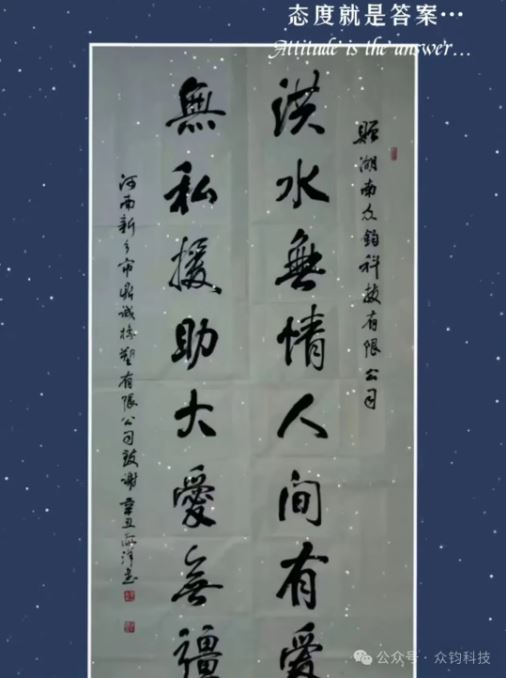 态度就是答案…
Attitude is the answer...
贈湖南众鈞科技有限公司
洪水無情人间有愛
無私援助大愛無疆
河南新乡市鼎诚橡塑有限公司致谢 辛丑
公众号·众钧科技